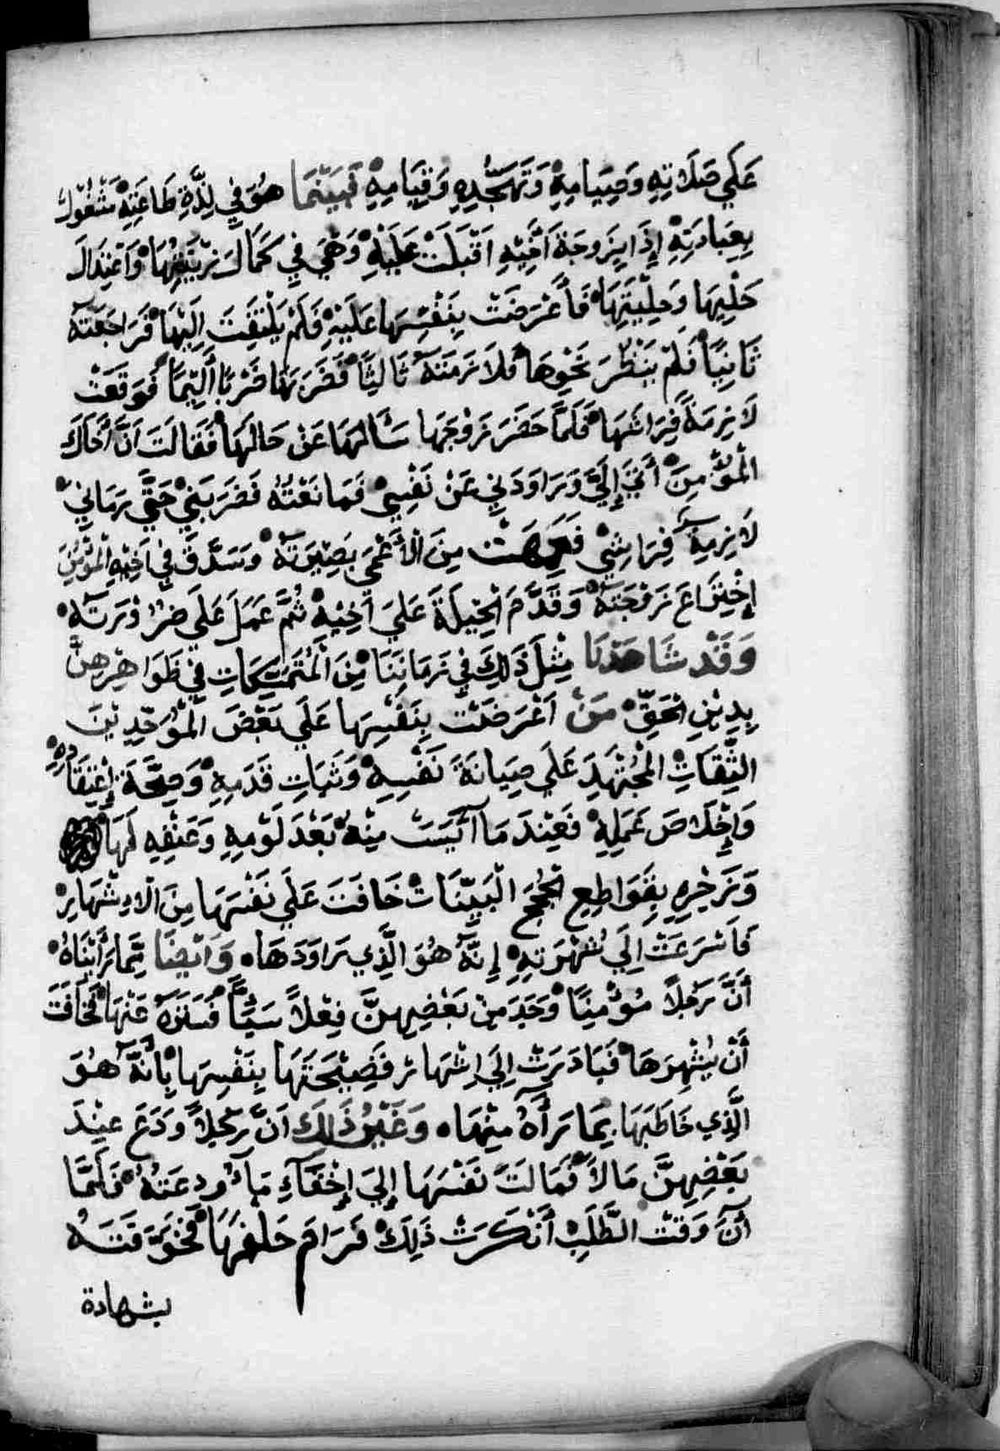 عَلَي صَلَاتِهِ وَصِيَامِهِ وَتَهَجُّدِهِ وَقِيَامِهِ فَبَيْنَمَا هُوَ فِي لَذَّةِ طَاعَتِهِ مَشْغُولٌ
بِعِبَادَتِهِ إِذَا بِزَوجَةِ أَخِيْهِ اقْبَلَتْ عَلَيْهِ وَهْيَ فِي كَمَالِ تَزْيِينِهَا وَاعْتِدَالِ
حَلْيِهَا وَحِلْيَتِهَا فَأَعْرَضَتْ بِنَفْسِهَا عَلَيْهِ فَلَمْ يَلْتَفِتَ إِلَيْهَا فَرَاجَعَتَهُ
ثَانِيًا فَلَمْ يَنْظُرَ نَحْوِهَا فَلَازَمَتَهُ ثَالِثًا فَضَرَبَهَا ضَرْبًا أَلِيمًا فَوَقَعَتْ
لَازِمَةً فِرَاشَهَا فَلَمَّا حَضَرَ زَوْجَهَا سَالَهَا عَنْ حَالِهَا فَقَالَتَ انَّ أَخَاكَ
الْمُؤْمِنَ أَتَي إِلَيَّ وَرَاوَدَنِي عَنْ نَفْسِي فَمَانَعْتُهُ فَضَرَبَنِي حَتَّي رَمَانِي
لَازِمَةً فِرَاشِي فَعَمِهَتْ مِنَ الْأَعْمَي بَصِيرَتَهُ وَسَدَّقَ فِي أَخِيْهِ الْمُؤْمِنِ
إِخْتِرَاعَ زَوْجَتَهُ وَقَدَّمَ الْحِيلَةَ عَلَي أَخِيْهِ ثُمَّ عَمِلَ عَلَي ضرُوْرَتَهُ
وَقَدْ شَاهَدْنَا مِثْلَ ذَلِكَ فِي زَمَانِنَا مِنَ الْمُتَمَسِّكَاتِ فِي ظَوَاهِرِهِنَّ
بِدِيْنِ الْحَقِّ مَنْ اعْرَضَتْ بِنَفْسِهَا عَلَي بَعْضَ الْمُوَحِّدِيْنَ
الثِّقَاتْ الْمُجْتَهِدَ عَلَي صِيَانَةَ نَفْسِهِ وَثَبَاتِ قَدَمِهِ وَصِحَّةَ إِعْتِقَادِهِ
وَإِخْلَاصَ عَمَلِهِ فَعِنْدَ مَا آيَسَتْ مِنْهُ بَعْدَ لَوْمِهِ وَعَنْفِهِ لَهَا
وَزَجْرِهِ بِقَوَاطِعِ الْحُجَجِ الْبَيِّنَاتْ خَافَتَ عَلَي نَفْسَهَا مِنَ الْاِشْهَارِ
فَاسْرَعَتْ إِلَي شُهْرَتِهِ إِنَّهُ هُوَ الَّذِي رَاوَدَهَا. وَايْضًا مِمَّا رَأَيْنَاهُ
أَنَّ رَجُلًا مُؤْمِنًا وَجَدَ مِنْ بَعْضِهِنَّ فِعْلًا سَيِّئًا فَسَتَرَهُ عَنْهَا فَخَافَتَ
أَنْ يُشْهِرَهَا فَبَادَرَتْ إِلَي اِشْهَارِ فَضِيْحَتَهَا بِنَفْسِهَا بِأَنَّهُ هُوَ
الَّذِي خَاطَبَهَا بِمَا رَأَهُ مِنْهَا. وَغَيْرُ ذَلِكَ انَّ رَجُلًا وَدَعَ عِنْدَ
بَعْضِهِنَّ مَالًا فَمَالَتَ نَفْسَهَا إِلَي إِخْفَآءِ مَا أُودِعَتْهُ فَلَمَّا
آنَ وَقْتُ الطَّلَبْ أَنْكَرَتْ ذَلِكَ فَرَامَ حَلْفَهَا فَخَوَّفَتَهُ
بشهادة